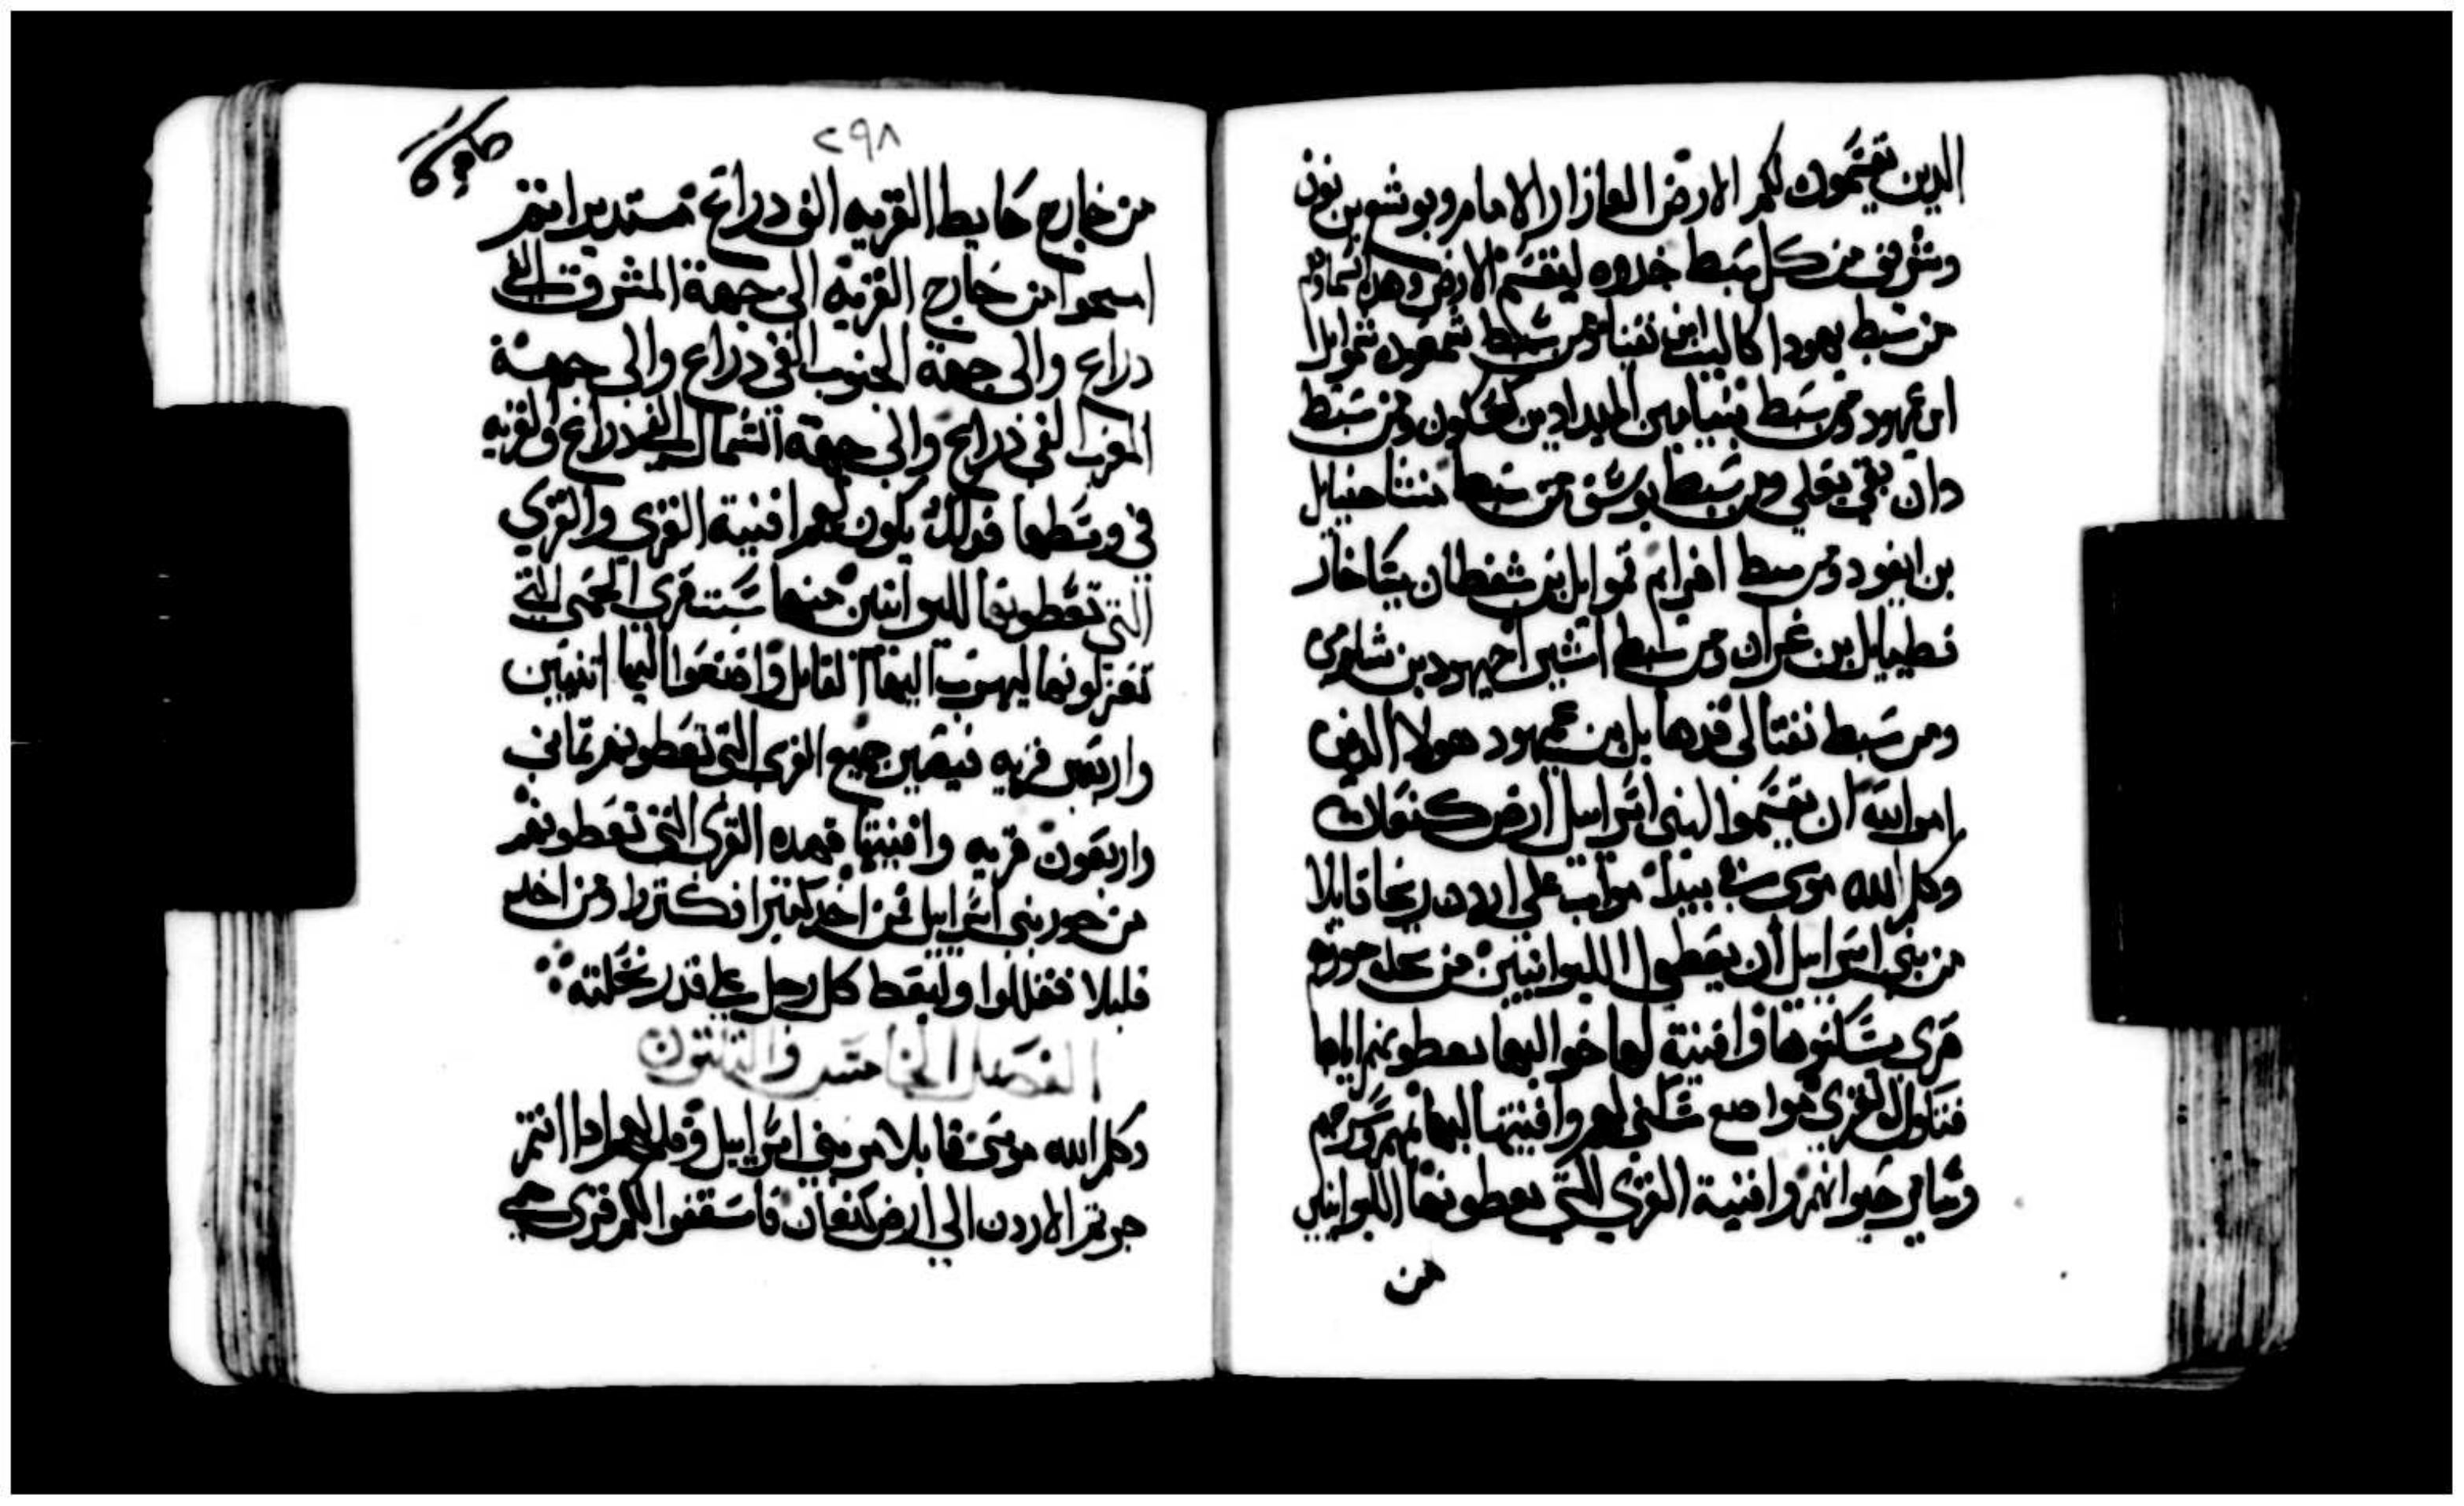 الدين تقسمون لكم الارض العازار الامام ويوشو بن نون
وشريف من كل سبط خدوه ليقسم الارض وهده اسماوهم
من سبط يهودا كالب ابن تفنا ومن سبط شمعون شموايل
ابن عميهود ومن سبط بنيامين الميداد بن كسلون ومن سبط
دان بقي بن يقلي ومن سبط يوسف من سبط منشا حنيايل
بن ايفود ومن سبط افرايم قموايل بن شفطان يساخار
فطيايل بن عزان ومن سبط اشير احيهود بن شلومي
ومن سبط نفتالي فدهايل بن عميهود هولا الدين
امر الله ان يقسموا لبني اسراييل ارض كنعان
وكلم الله موسى في بيدا مواب على اردن ريحا قايلا
من بني اسراييل ان يعطوا الليوانيين من نحله حوزهم
قرى يسكنوها وافنية لها حواليها تعطونهم اياها
فتكون القرى مواضع سكني لهم وافنيتها لبهايمهم وسرحهم
وساير حيوانهم وافنية القرى التي تعطونها الليوانيين
من
٢٩٨
من خارج حايط القريه الف دراع مستدير انتم
امسحوا من خارج القريه الى جهة المشرق الفي
دراع والى جهة الجنوب الفي دراع والى جهة
المغرب الفي دراع والى جهة الشمال الفي دراع والقريه
في وسطها فدلك يكون لهم افنية القرى والقرى
التي تعطونها لليوانيين منها ست قرى الحمى التي
تعزلونها ليهرب اليها القاتل واضعوا اليها اتنين
واربعين قريه فيصير جميع القرى التي تعطونهم تماني
واربعون قريه وافنيتها فهده القرى التي تعطونهم
من حوز بني اسراييل فمن اخد كتير افكتروا ومن اخد
قليلا فقللوا وليعط كل رجل على قدر نحلته
الفصل الخامس والتلتون
وكلم الله موسى قايلا مر بني اسراييل وقل لهم ادا انتم
جزتم الاردن الى ارض كنعان فاسقفوا لكم قرى حمى